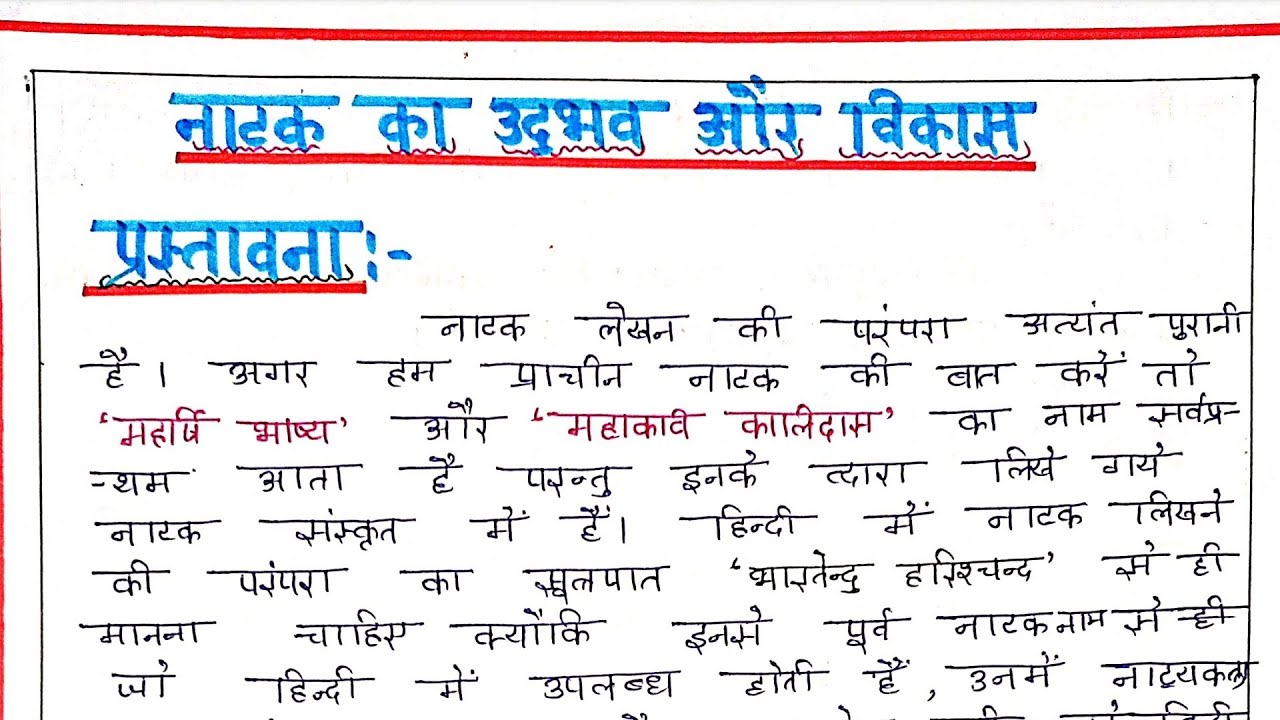 नाटक का उद्‌भव और विकास
प्रस्तावना:-
नाटक लेखन की परंपरा अत्यंत पुरानी
है। अगर हम प्राचीन नाटक की बात करें तो
'महर्षि भाष्य' और 'महाकवि कालिदास' का नाम सर्वप्र-
-थम आता है परन्तु इनके द्वारा लिखे गये
नाटक संस्कृत में हैं। हिन्दी में नाटक लिखने
की परंपरा का सूत्रपात 'भारतेन्दु हरिश्चन्द' से ही
मानना चाहिए क्योंकि इनसे पूर्व नाटक नाम से ही
जो हिन्दी में उपलब्ध होती हैं, उनमें नाट्यकला